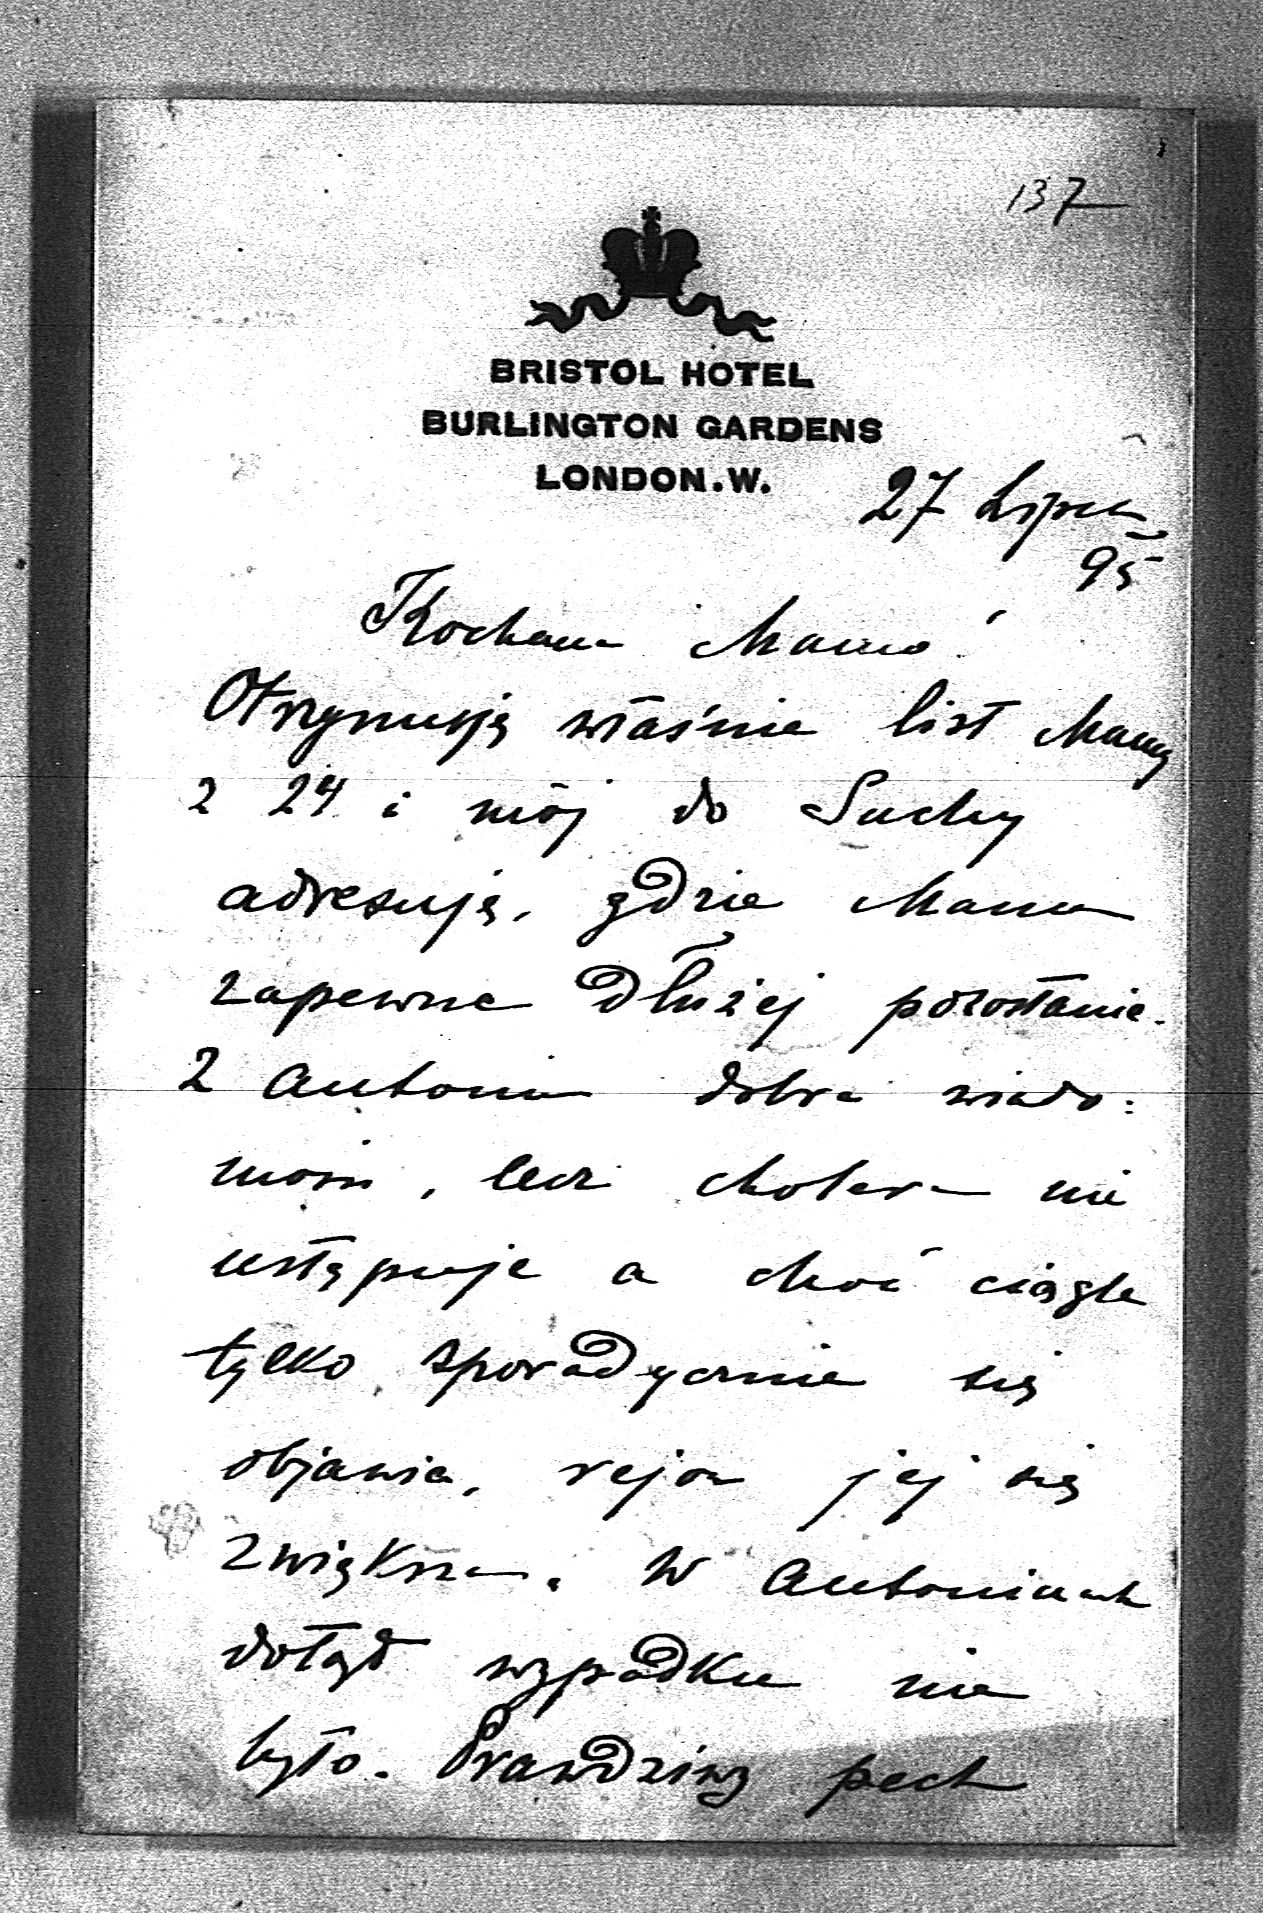 137
BRISTOL HOTEL
BURLINGTON GARDENS
LONDON.W.
27 Lipca
95
Kochana Mamo!
Otrzymuję właśnie list Mamy
z 24 i mój do Suchy
adresuję, gdzie Mama
zapewne dłużej pozostanie.
Z Antonin dobre wiado:
mości, lecz cholera nie
ustępuje a choć ciągle
tylko sporadycznie się
objawia, rejon jej się
zwiększa. W Antoninach
dotąd wypadku nie
było. Prawdziwy pech